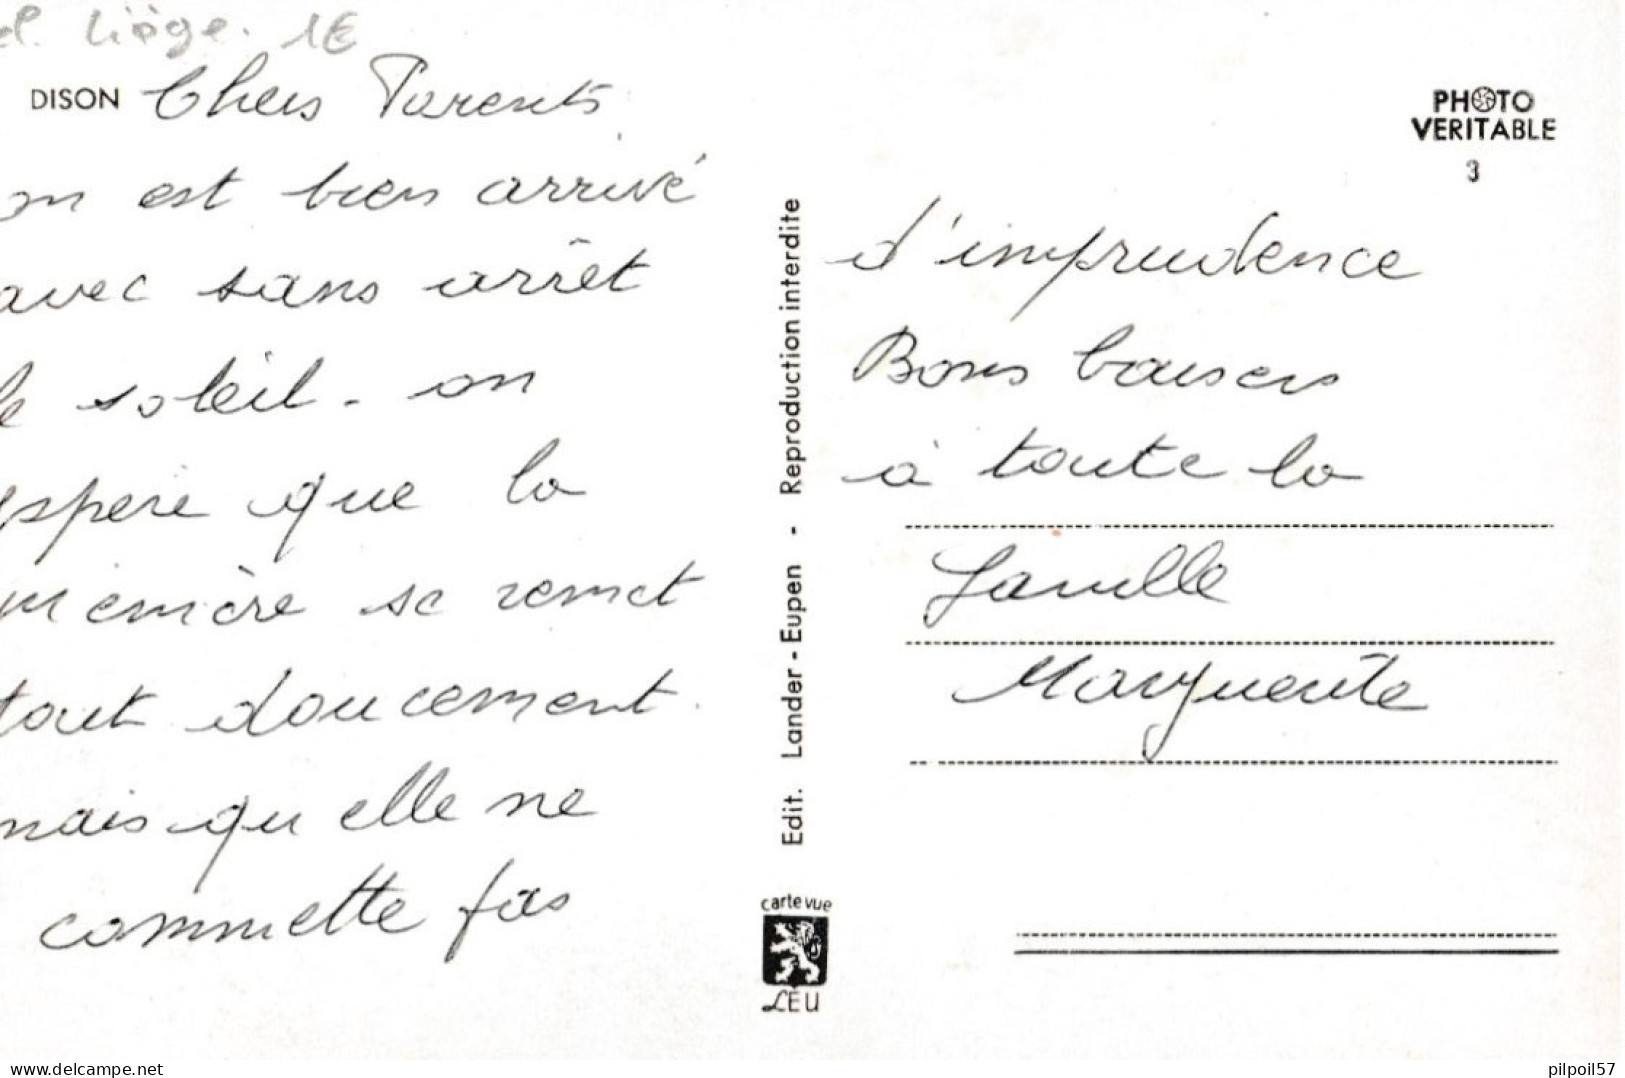 d. Liège. 1€
DISON Chers Parents
on est bien arrivé
avec sans arrêt
le soleil - on
espère que la
mémère se remet
tout doucement.
mais qu'elle ne
commette pas
Edit. Lander - Eupen - Reproduction interdite
carte vue
LEU
PHOTO
VERITABLE
3
d'imprudence
Bons baisers
à toute la
famille
Marguerite
www.delcampe.net
pilpoil57